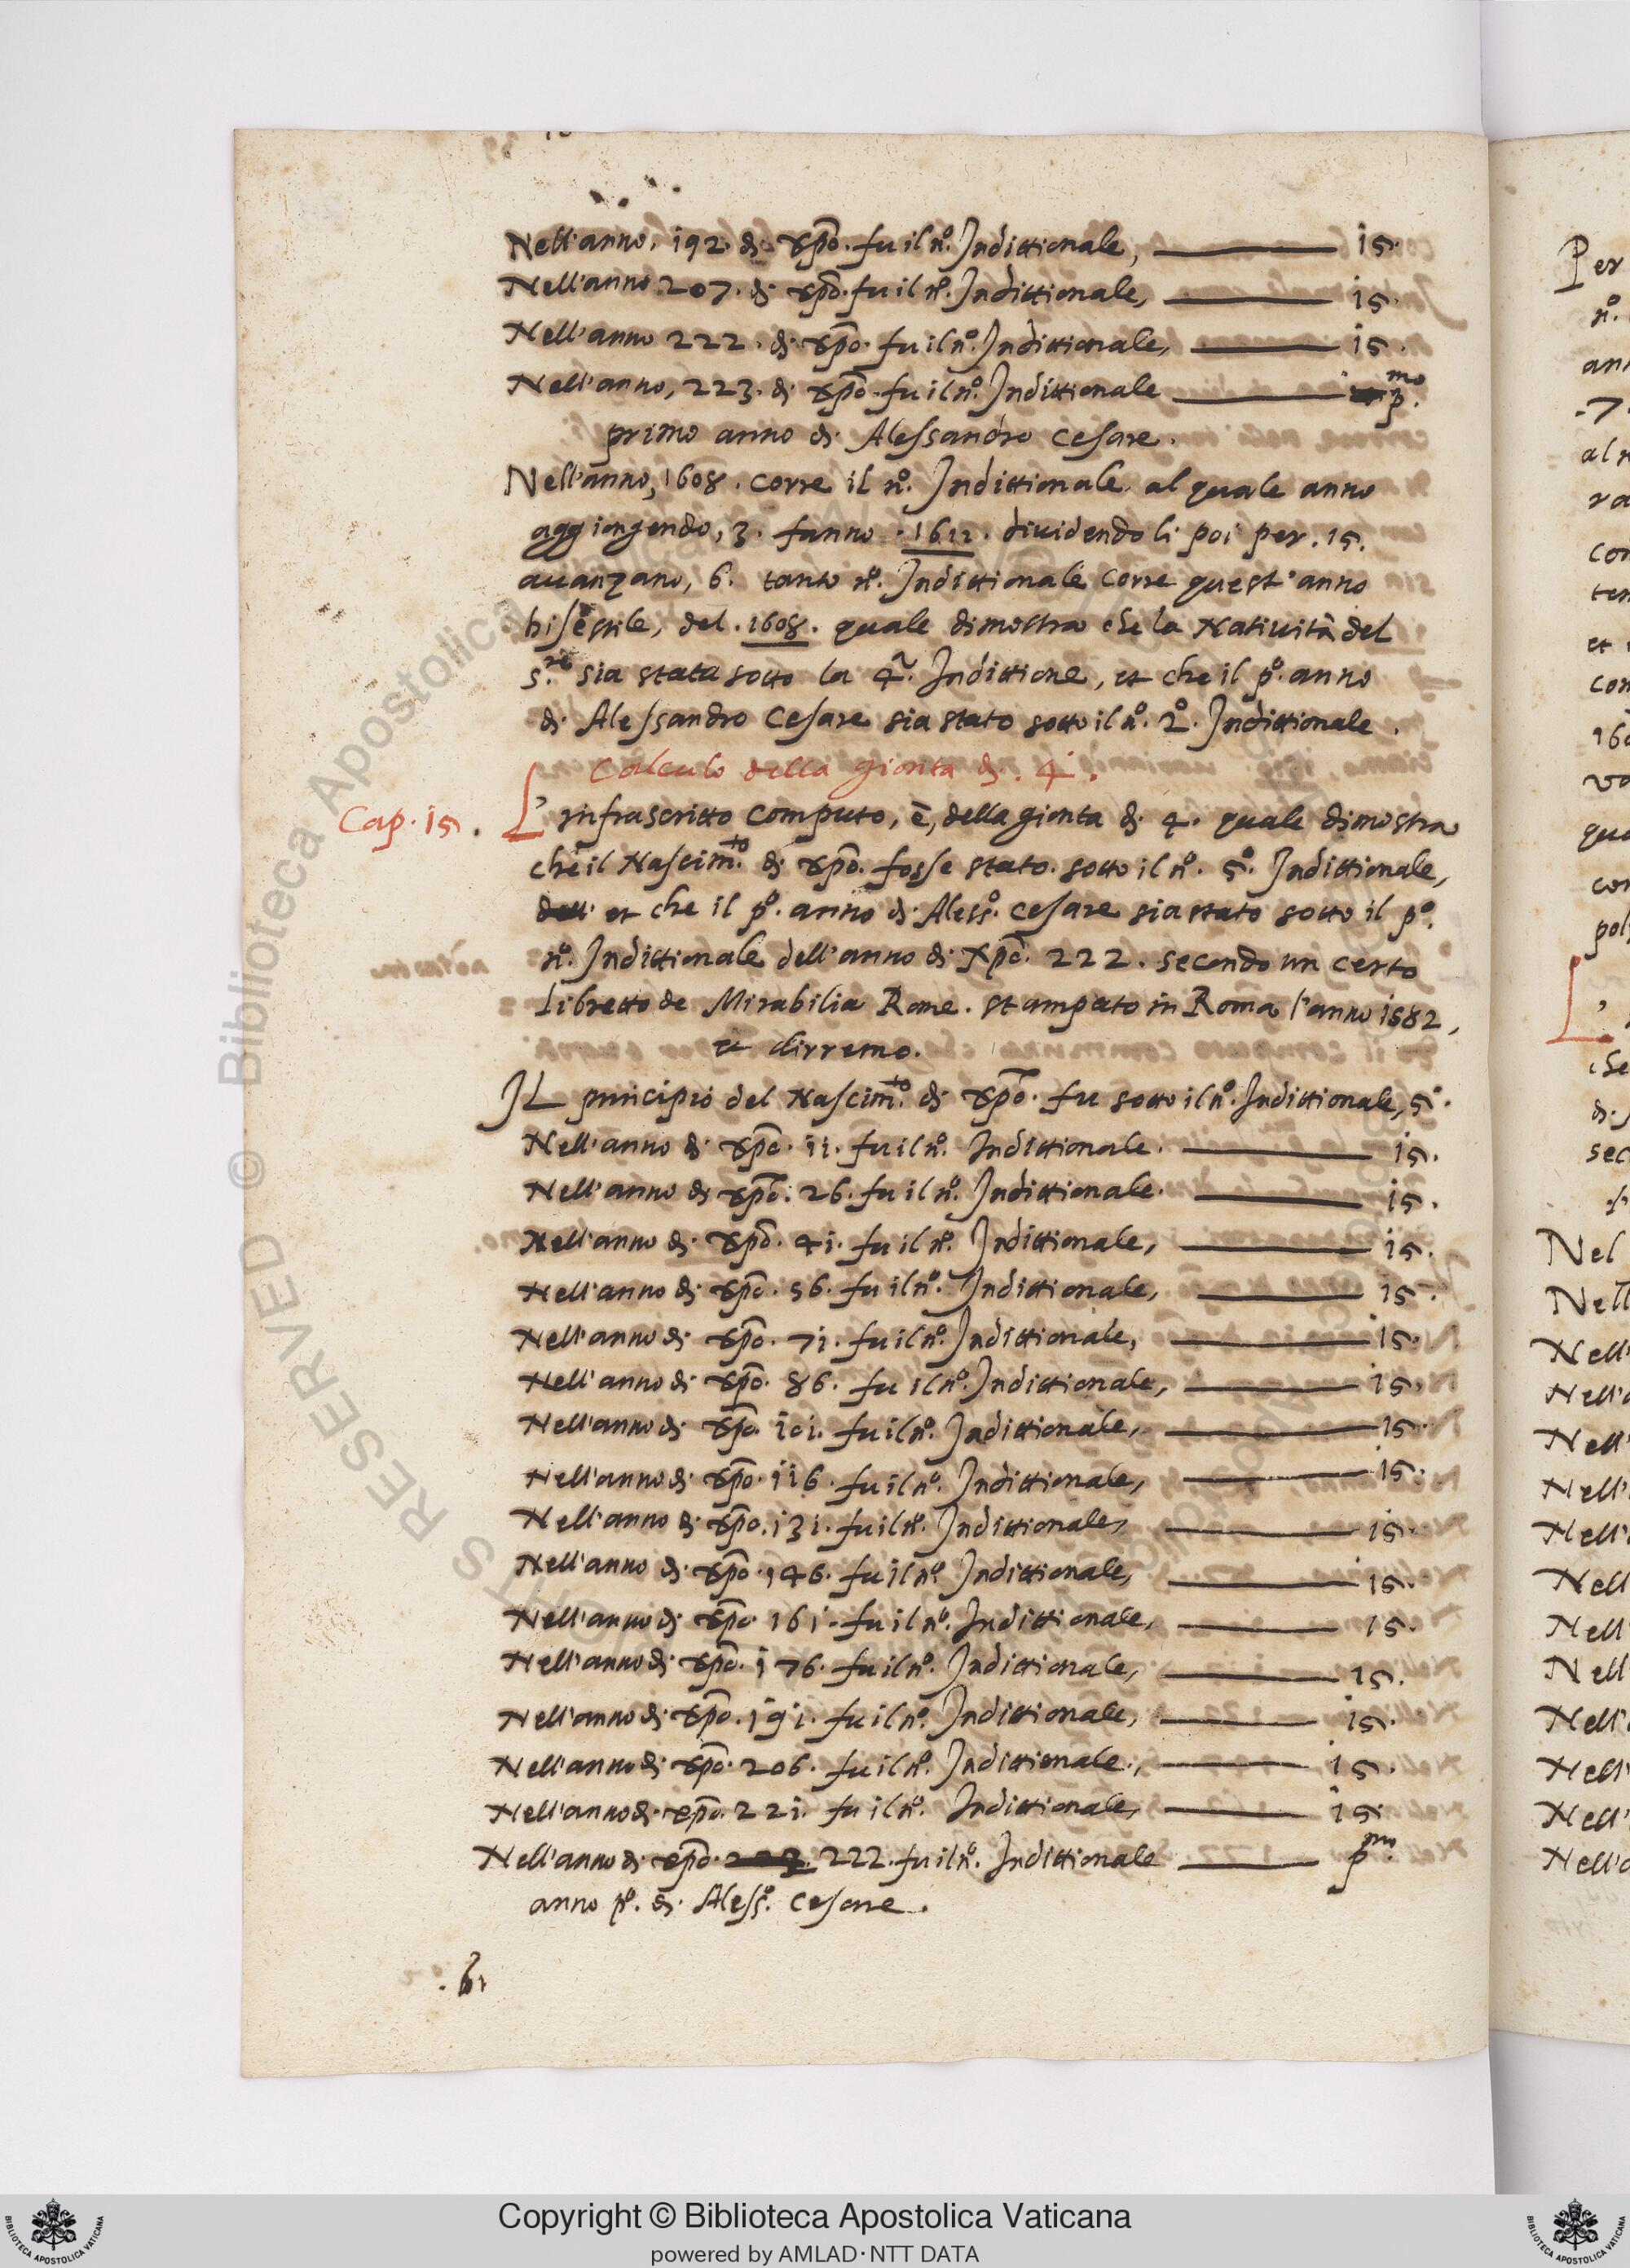 Nell'anno, 192. di xp̄o. fu il n.º Indittionale, 15.
Nell'anno 207. di xp̄o. fu il n.º Indittionale, 15.
Nell'anno 222. di xp̄o. fu il n.º Indittionale, 15.
Nell'anno, 223. di xp̄o. fu il n.º Indittionale p.mo
primo anno di Alessandro Cesare.
Nell'anno, 1608. corre il n.º Indittionale al quale anno
aggiongendo, 3. fanno. 1611. diuidendoli poi per. 15.
auanzano, 6. tanto n.º Indittionale corre quest'anno
bisestile, del. 1608. quale dimostra che la Natiuità del
S.re sia stata sotto la 4.ª Indittione, et che il p.º anno
di Alessandro Cesare sia stato sotto il n.º 2.º Indittionale.
Calculo della gionta di. 4.
Cap. 15. L'infrascritto computo, è, della gionta di 4. quale dimostra
che il Nascim.to di xp̄o. fosse stato sotto il n.º 5.º Indittionale,
dell' et che il p.º anno di Aless.º Cesare sia stato sotto il p.º
n.º Indittionale dell'anno di Xp̄o. 222. secondo un certo
libretto de Mirabilia Rome. stampato in Roma l'anno 1582,
et dirremo.
IL principio del Nascim.to di xp̄o. fu sotto il n.º Indittionale, 5.º
Nell'anno di xp̄o. 11. fu il n.º Indittionale. 15.
Nell'anno di xp̄o. 26. fu il n.º Indittionale. 15.
Nell'anno di xp̄o. 41. fu il n.º Indittionale, 15.
Nell'anno di xp̄o. 56. fu il n.º Indittionale, 15.
Nell'anno di xp̄o. 71. fu il n.º Indittionale, 15.
Nell'anno di xp̄o. 86. fu il n.º Indittionale, 15.
Nell'anno di xp̄o. 101. fu il n.º Indittionale, 15.
Nell'anno di xp̄o. 116. fu il n.º Indittionale, 15.
Nell'anno di xp̄o. 131. fu il n.º Indittionale, 15.
Nell'anno di xp̄o. 146. fu il n.º Indittionale, 15.
Nell'anno di xp̄o. 161. fu il n.º Indittionale, 15.
Nell'anno di xp̄o. 176. fu il n.º Indittionale, 15.
Nell'anno di xp̄o. 191. fu il n.º Indittionale, 15.
Nell'anno di xp̄o. 206. fu il n.º Indittionale, 15.
Nell'anno di xp̄o. 221. fu il n.º Indittionale, 15.
Nell'anno di xp̄o. 223. 222. fu il n.º Indittionale p.mo
anno p.º di Aless.º Cesare.
Per
n.º
-7.
Nel
Nell
Nell'
Nell'
Nell'
Nell'
Nell'
Nell
Nell
Nell
Nell'
Nell'
Nell'
© Biblioteca Apostolica
RESERVED
Copyright © Biblioteca Apostolica Vaticana
powered by AMLAD·NTT DATA
BIBLIOTECA APOSTOLICA VATICANA
BIBLIOTECA APOSTOLICA VATICANA